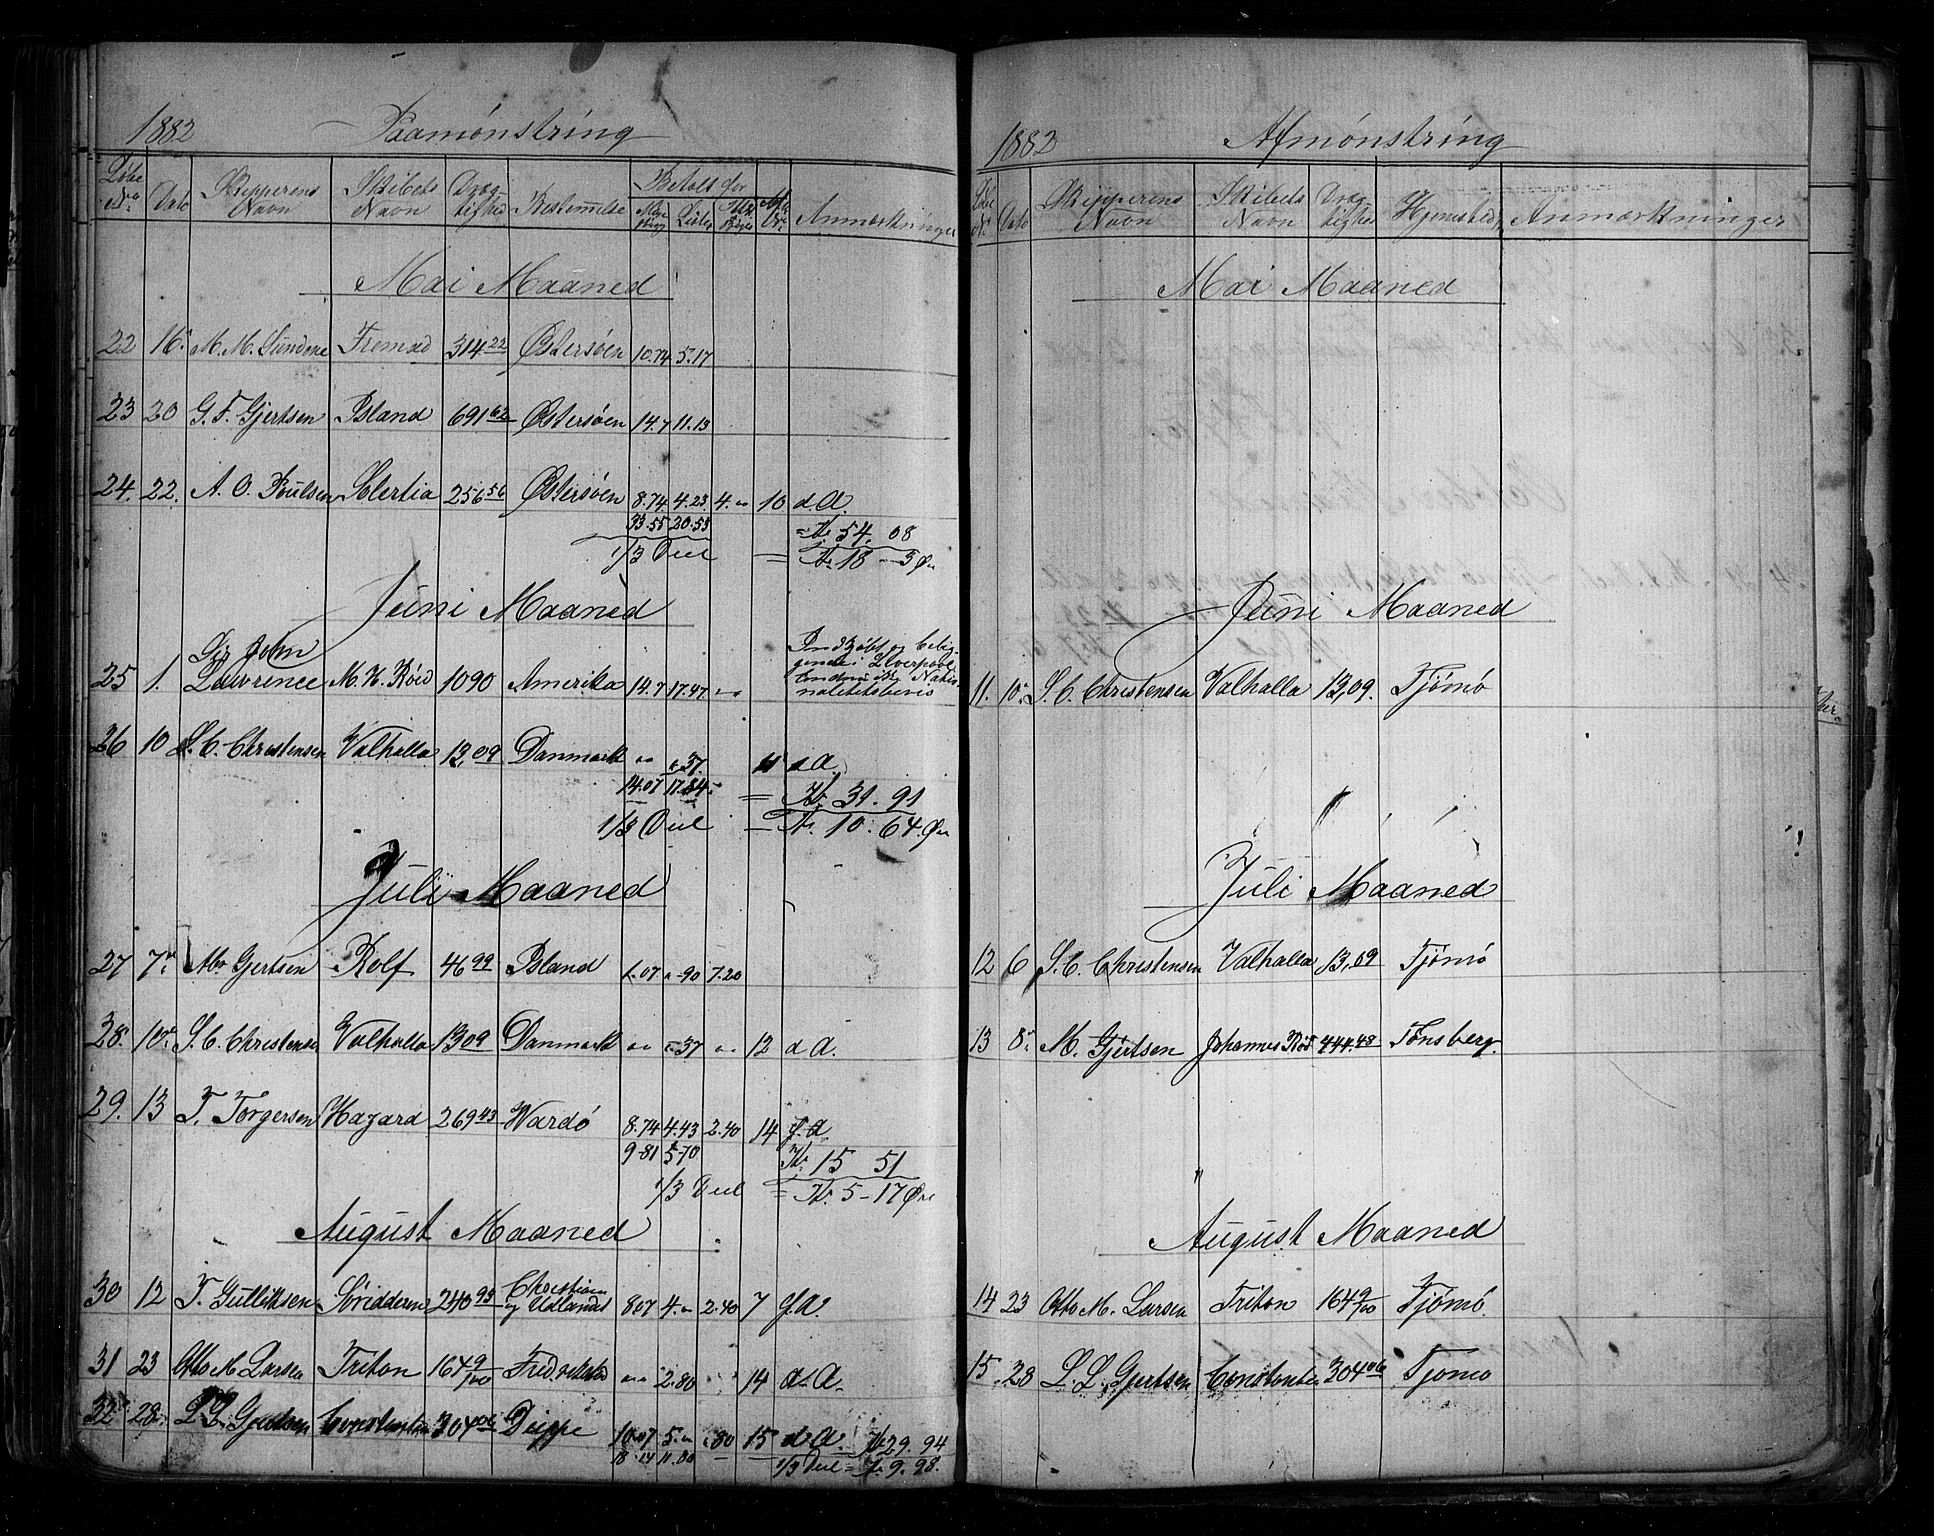 1882 Paamønstring
Løbe No Dato Skipperens Navn Skibets Navn Dræg-tighed Bestemmelse Betalt for Liste Anmærkninger
Mai Maaned
22 16. M. M. 314 22 Østersøen 10.74 5.17
23 20 G. F. Gjertsen Island 691 62 Østersøen 14.7 11.13
24. 22. A. O. Poulsen 256 56 Østersøen 8.74 4.23 4. „ 10 d. A.
33.55 20.53 = Kr. 54. 08
1/3 Deel = Kr. 18 - 3 Øre
Juni Maaned
25 1. Sir John Lawrence M. H. Röed 1090 Amerika 14.7 17.47 „
Indkjöbt og
i Liverpool
Natio-
nalitetsbevis
26 10 S. C. Christensen Valhalla 13,09 Danmark „ „ 37. 11 d A.
14.07 17.84 = Kr. 31. 91
1/3 Deel = Kr. 10. 64. Øre
Juli Maaned
27 7. Gjertsen Rolf 46 99 Island 1.07 „ 90 7.20
28. 10. S. C. Christensen Valhalla 13 09 Danmark „ „ 37 „ 12 d A.
29. 13 T. Torgersen Hazard 269 43 Wardö 8.74 4.43 2.40 14 f. A
9-81 5-70 Kr. 15 51
1/3 Deel = Kr. 5 - 17 Øre
August Maaned
30 12 T. Gulliksen 240 95 Christiania og Udlandet 8.07 4. „ 2.40 7 f. A.
31 23 Otto M. Larsen Triton 164 9/100 „ „ 2.80 14 d. A.
32 28. L. L. Gjertsen Constantia 304 06 Dieppe 10.07 5. „ .80 15 d A. Kr 29. 94
18.14 11.80 1/3 Deel = Kr. 9. 98.
1882 Afmønstring
Løbe No Dato Skipperens Navn Skibets Navn Dræg-tighed Hjemsted Anmærkninger
Mai Maaned
Juni Maaned
11. 10. S. C. Christensen Valhalla 13,09. Tjömö
Juli Maaned
12 6 S. C. Christensen Valhalla 13,09 Tjömö
13 8. M. Gjertsen Johannes Röd 444.48 Tönsberg.
August Maaned
14 23 Otto M. Larsen Triton 164 9/100 Tjömö.
15. 28 L. L. Gjertsen Constantia 304 06 Tjömö